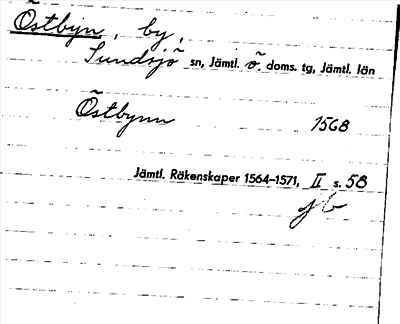 Östbyn, by,
Sundsjö sn, Jämtl. ö. doms. tg, Jämtl. län
Östbynn 1568
Jämtl. Räkenskaper 1564–1571, II s. 58